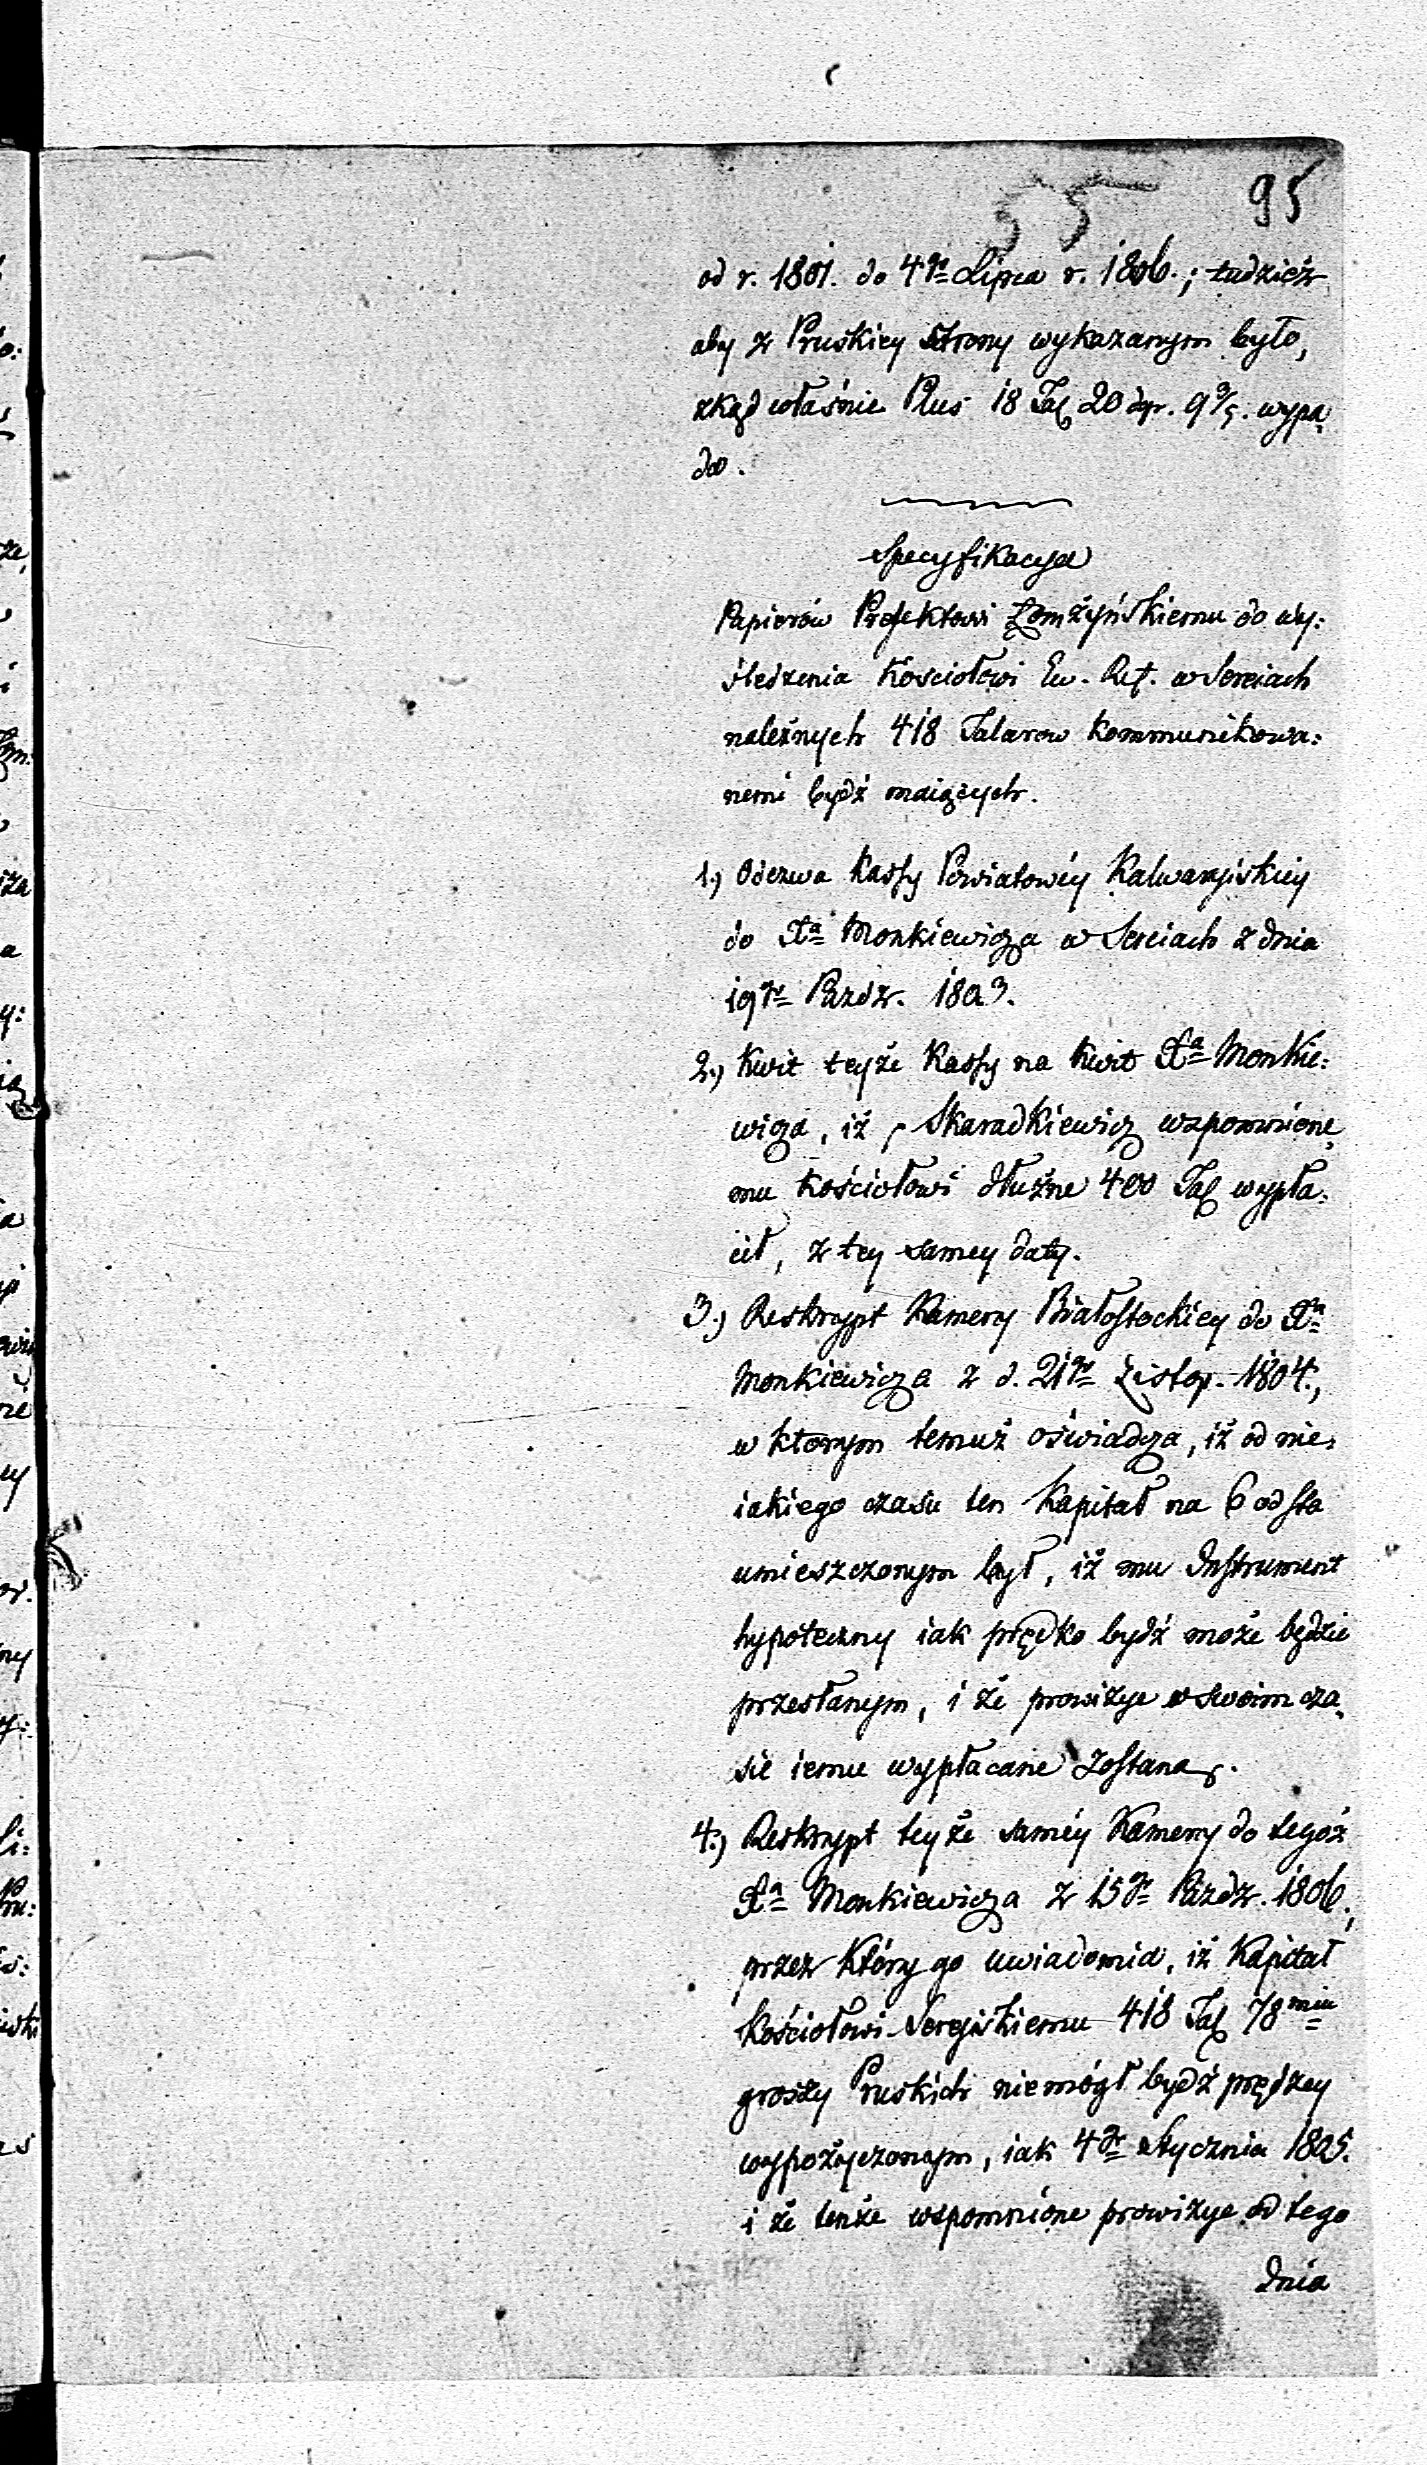 95
od r. 1801. do 4go Lipca r. 1806.; tudzież
aby z Pruskiey strony wykazanym było,
zkąd właśnie Plus 18 Tal 20 dgr. 9 3/5. wypa,
da.
Specyfikacya
Papierów Prefektowi Łomżyńskiemu do wy:
śledzenia Kościołowi Ew. Ref. w Sereiach
należnych 418 Talarow kommunikowa:
nemi bydź maiących.
1.) Odezwa Kassy Powiatowéy Kalwaryiskiey
do Xa Monkiewicza w Sereiach z dnia
19go Paźdz. 1803.
2.) Kwit teyże Kassy na Kwit Xa Monkie:
wicza, iż Skaradkiewicz wzpomnione,
mu Kościołowi dłużne 400 Tal wypła:
cił, z tey samey daty.
3.) Reskrypt Kamery Białostockiey do Xa
Monkiewicza z d. 21go Listop. 1804.,
w ktorym temuż oświadcza, iż od nie,
iakiego czasu ten Kapitał na 6 od sta
umieszczonym był, iż mu Instrument
hypoteczny iak prędko bydź może będzie
przesłanym, i że prowizye w swoim cza,
sie iemu wypłacane zostaną.
4.) Reskrypt teyże saméy Kamery do tegoż
Xa Monkiewicza z 15go Paźdz. 1806.,
przez który go uwiadomia, iż Kapitał
Kościołowi Sereyskiemu 418 Tal 78miu
groszy Pruskich niemógł bydź prędzey
wypożyczonym, iak 4go Stycznia 1805.
i że tenże wspomnione prowizye od tego
dnia